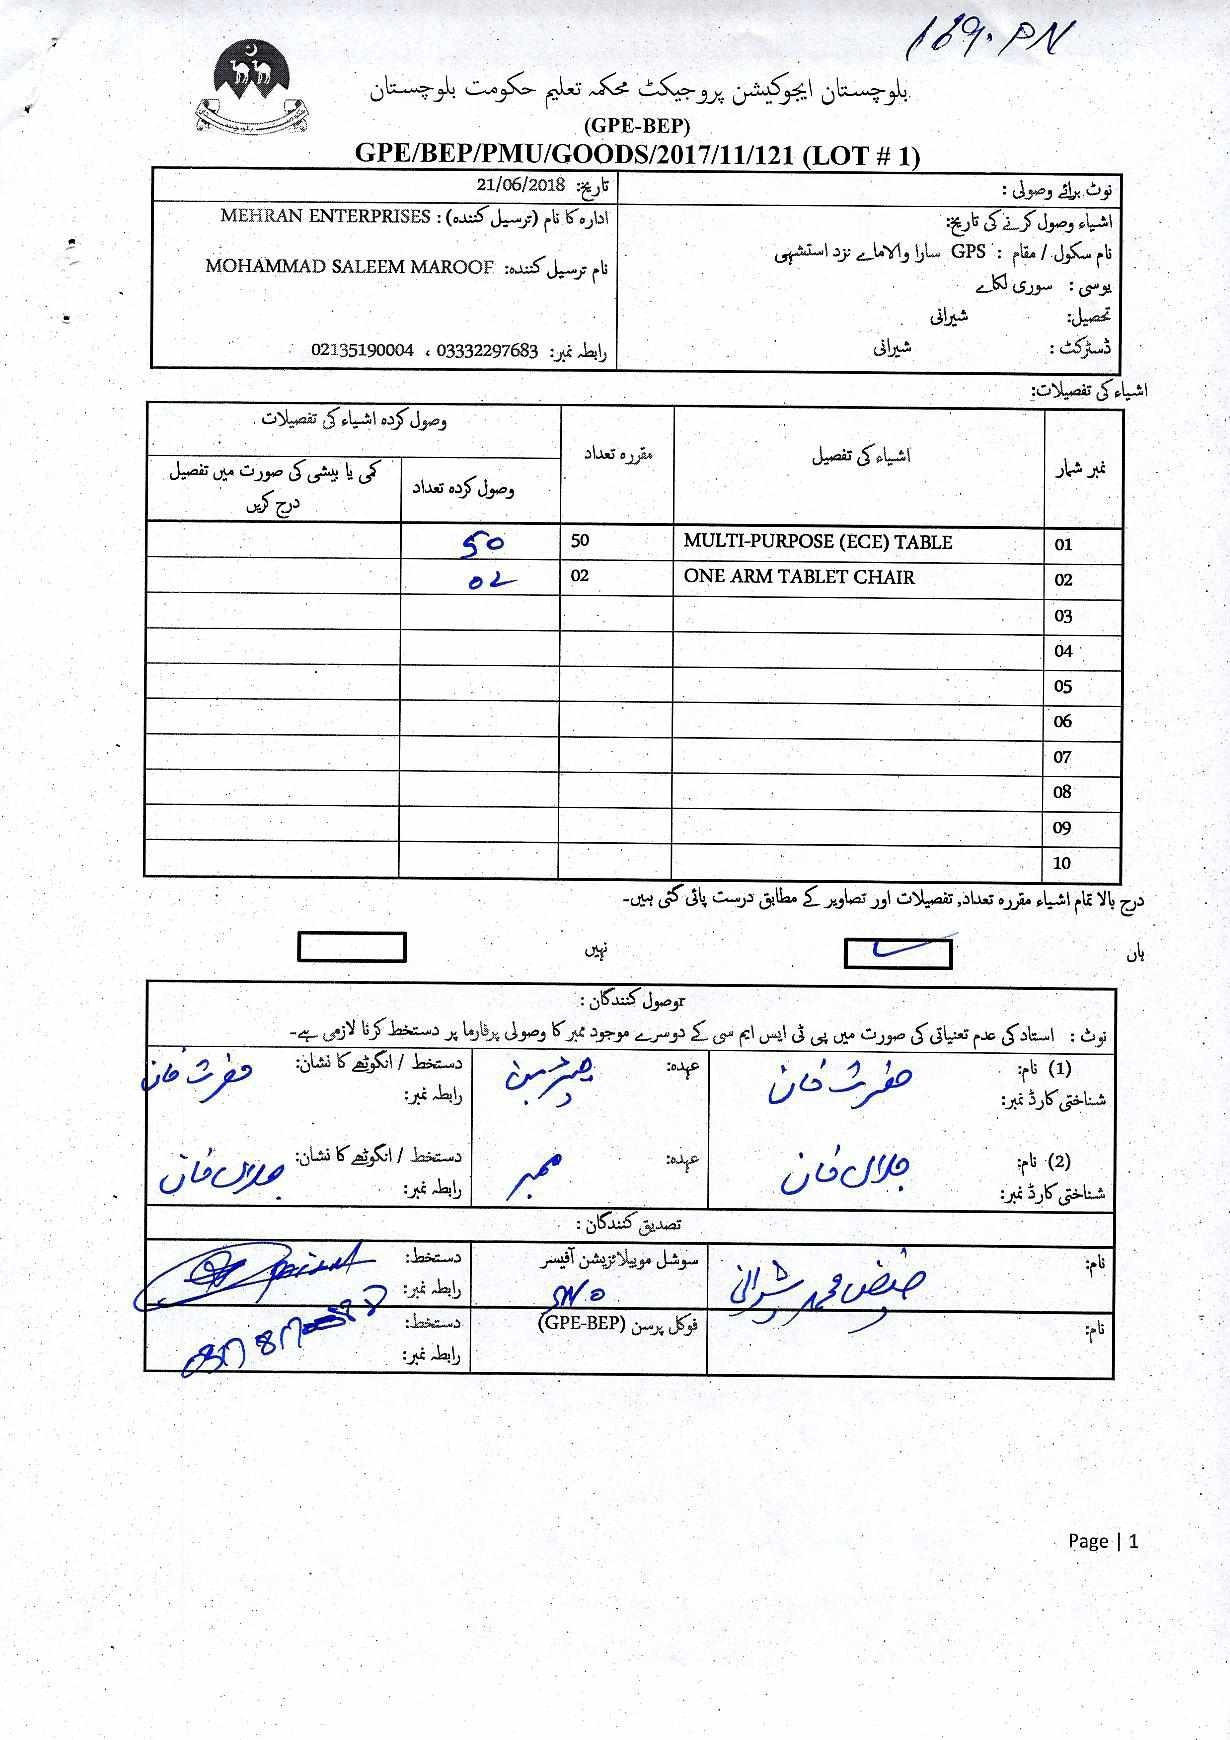 169. PN
بلوچستان ایجوکیشن پروجیکٹ محکمہ تعلیم حکومت بلوچستان
(GPE-BEP)
GPE/BEP/PMU/GOODS/2017/11/121 (LOT # 1)
نوٹ برائے وصولی :
تاریخ: 21/06/2018
اشیاء وصول کرنے کی تاریخ:
ادارہ کا نام (ترسیل کنندہ) : MEHRAN ENTERPRISES
نام سکول / مقام : GPS سارا والاماے نزد استشہی
نام ترسیل کنندہ: MOHAMMAD SALEEM MAROOF
یوسی : سوری لکاے
تحصیل: شیرانی
ڈسٹرکٹ : شیرانی
رابطہ نمبر: 03332297683 ، 02135190004
اشیاء کی تفصیلات:
نمبر شمار
اشیاء کی تفصیل
مقررہ تعداد
وصول کردہ اشیاء کی تفصیلات
وصول کردہ تعداد
کمی یا بیشی کی صورت میں تفصیل
درج کریں
01 MULTI-PURPOSE (ECE) TABLE 50 50
02 ONE ARM TABLET CHAIR 02 02
03
04
05
06
07
08
09
10
درج بالا تمام اشیاء مقررہ تعداد, تفصیلات اور تصاویر کے مطابق درست پائی گئی ہیں۔
ہاں
نہیں
وصول کنندگان :
نوٹ : استاد کی عدم تعنیاتی کی صورت میں پی ٹی ایس ایم سی کے دوسرے موجود ممبر کا وصولی پرفارما پر دستخط کرنا لازمی ہے۔
(1) نام: خان
عہدہ: چیرمین
دستخط / انگوٹھے کا نشان: خان
شناختی کارڈ نمبر:
رابطہ نمبر:
(2) نام: جلال خان
عہدہ: ممبر
دستخط / انگوٹھے کا نشان: جلال خان
شناختی کارڈ نمبر:
رابطہ نمبر:
تصدیق کنندگان :
نام: فیض محمد شیرانی
سوشل موبیلائزیشن آفیسر
SMO
دستخط:
رابطہ نمبر:
نام:
فوکل پرسن (GPE-BEP)
دستخط:
رابطہ نمبر:
Page | 1